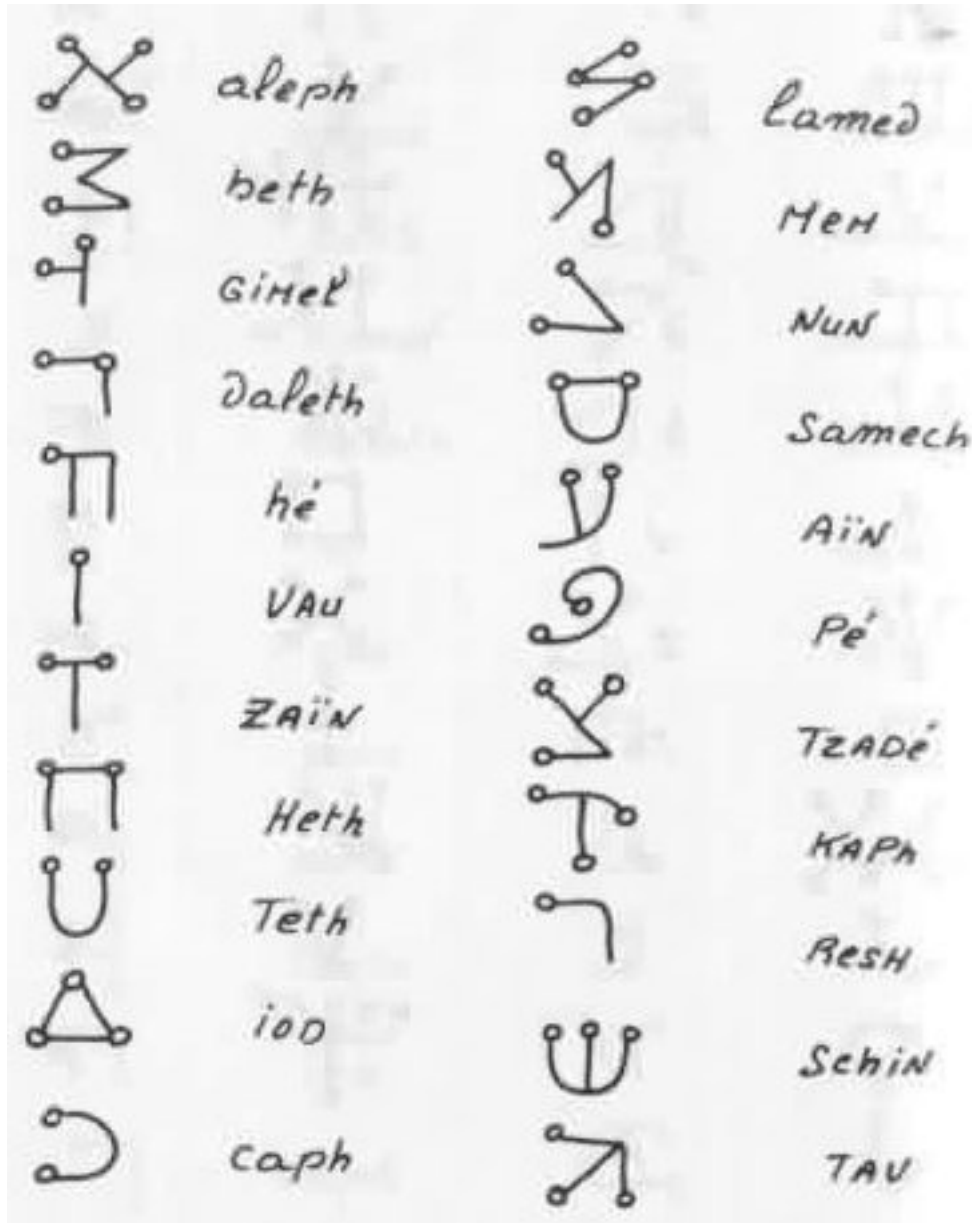 aleph
beth
GiMel
daleth
hé
VAu
ZAïN
Heth
Teth
ioD
caph
lamed
MeM
NuN
Samech
AïN
Pé
TZADé
KAPh
ResH
SchiN
TAU